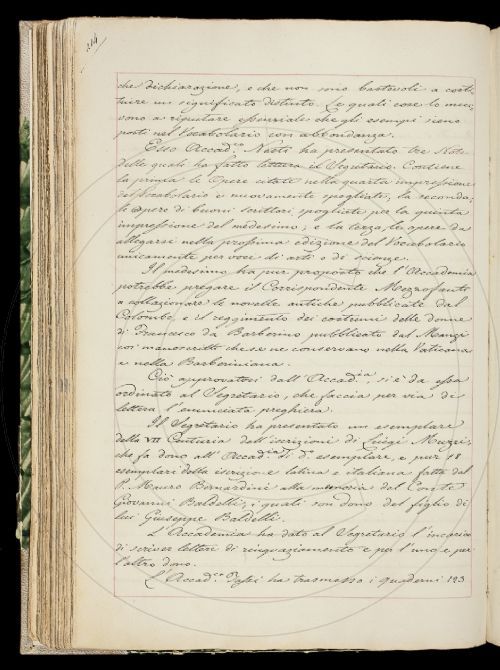 214
che dichiarazione, e che non sono bastevoli a costi-
tuire un significato distinto. Le quali cose lo
sono a riputare essenziale che gli esempi siano
posti nel Vocabolario con abbondanza.
Esso Accad.co Nesti ha presentato tre Note
delle quali ha fatto lettura il Segretario. Contiene
la prima le Opere citate nella quarta impressione
del Vocabolario e nuovamente spogliate; la seconda;
le opere di buoni scrittori spogliate per la quinta
impressione del medesimo; e la terza le opere da
allegarsi nella prossima edizione del Vocabolario
unicamente per voce di arti o di scienze.
Il medesimo ha pur proposto che l'Accademia
potrebbe pregare il Corrispondente Mezzofanti
a collazionare le novelle antiche pubblicate dal
Colombo, e il reggimento dei costumi delle donne
di Francesco da Barberino pubblicato dal Manzi
coi manoscritti che se ne conservano nella Vaticana
e nella Barberiniana.
Ciò approvatosi dall'Accad.ia, si è da essa
ordinato al Segretario, che faccia per via di
lettera l'enunciata preghiera.
Il Segretario ha presentato un esemplare
della VII Centuria dell'iscrizioni di Luigi Muzzi,
che fa dono all'Accad.ia di d.o esemplare, e pur 18
esemplari della iscrizione latina e italiana fatta dal
P. Mauro Bernardini alla memoria del Conte
Giovanni Baldelli, i quali son dono del figlio di
lui Giuseppe Baldelli.
L'Accademia ha dato al Segretario l'incarico
di scriver lettere di ringraziamento e per l'uno e per
l'altro dono.
L'Accad.co ha trasmesso i quaderni 193